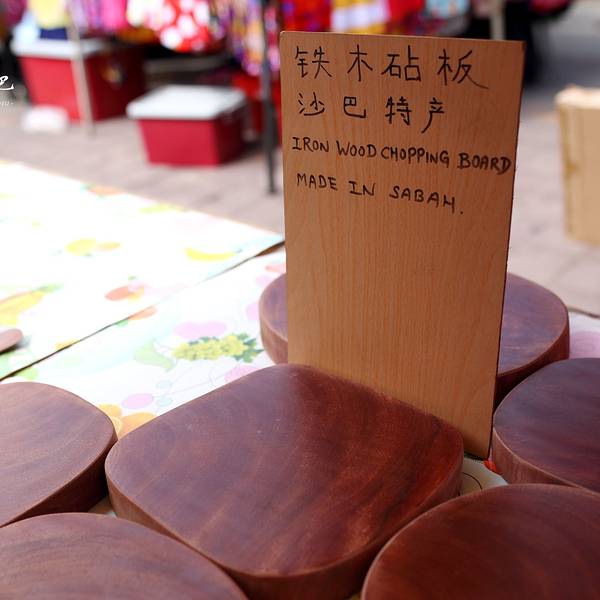 铁木砧板
沙巴特产
IRON WOOD CHOPPING BOARD
MADE IN SABAH.
巴